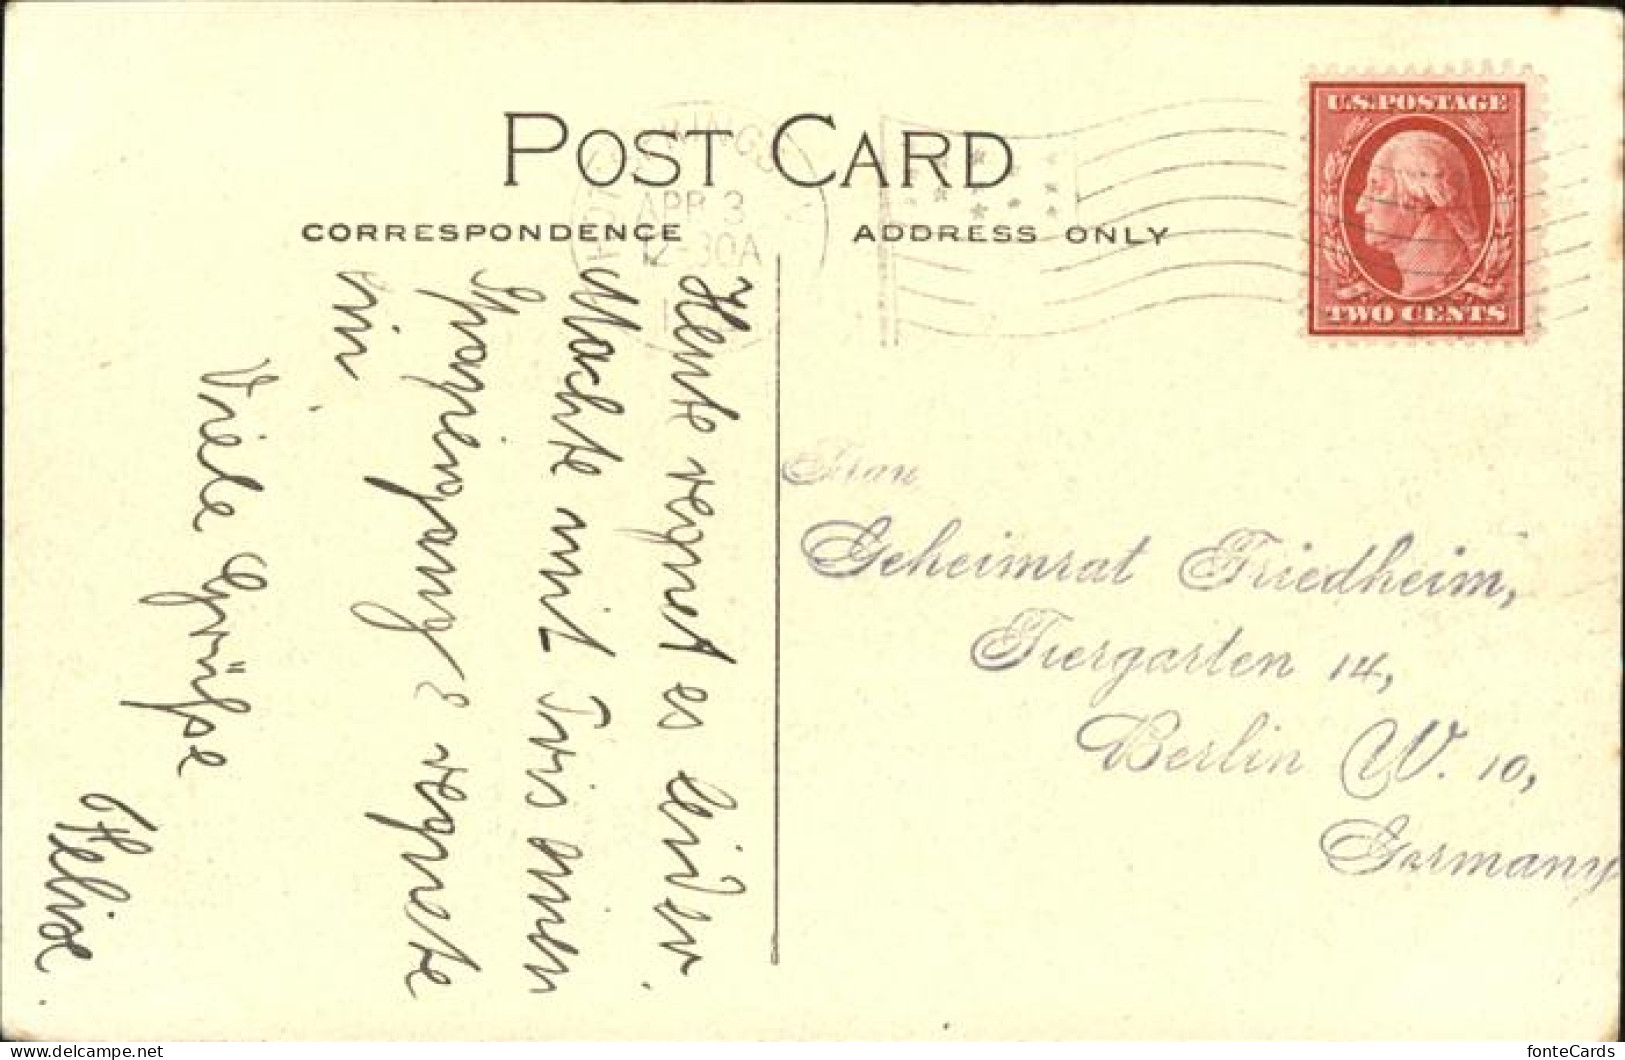 POST CARD
CORRESPONDENCE
ADDRESS ONLY
APR 3
12-30A
U.S.POSTAGE
TWO CENTS
Heute regnet es leider.
Machte mit Iris einen
Spaziergang & regnete
ein.
Viele Grüsse
Helise.
Frau
Geheimrat Friedheim,
Tiergarten 14,
Berlin W. 10,
Germany
fonteCards
Delcampe.net